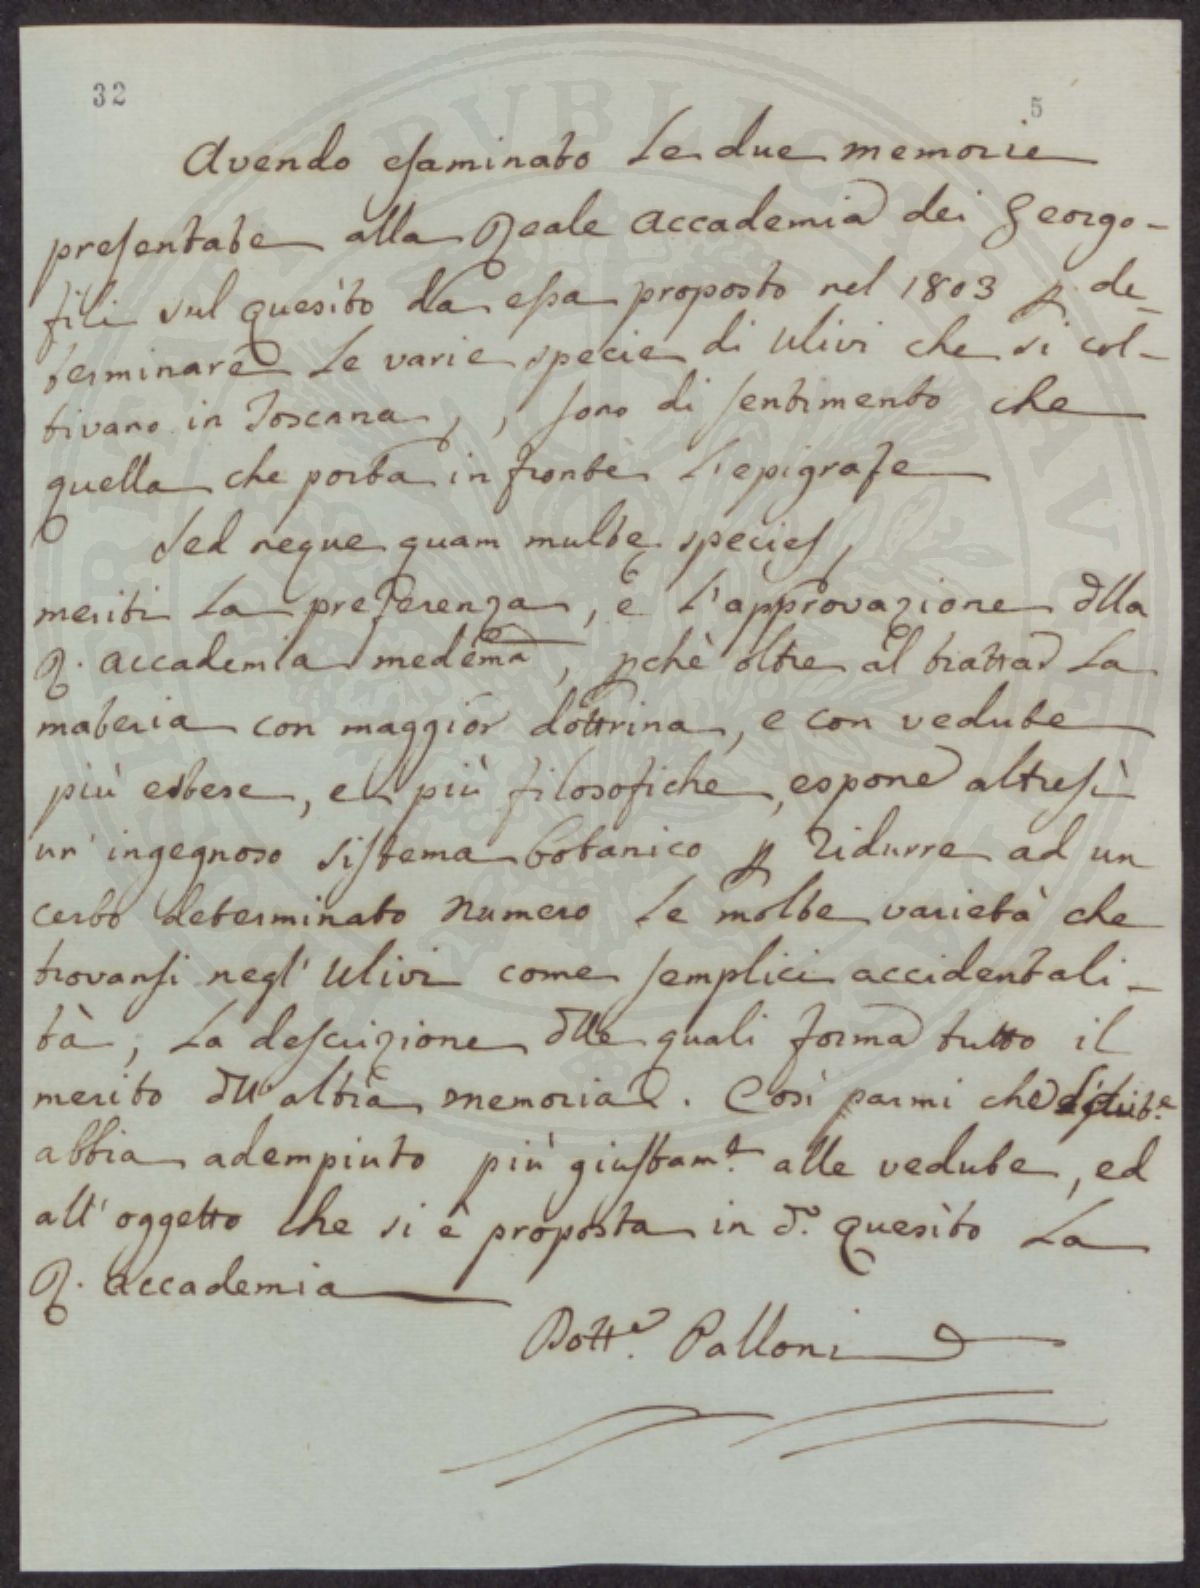 32
5
Avendo esaminato le due memorie
presentate alla Reale Accademia dei Georgo-
fili sul quesito da essa proposto nel 1803 p. de-
terminare le varie specie di Ulivi che si col-
tivano in Toscana, , sono di sentimento che
quella che porta in fronte l'epigrafe
Sed neque quam multe species,
meriti la preferenza, e l'approvazione dlla
R. Accademia medema, pchè oltre al trattar la
materia con maggior dottrina, e con vedute
più estese, e più filosofiche, espone altresì
un' ingegnoso sistema botanico p ridurre ad un
certo determinato numero le molte varietà che
trovansi negl' Ulivi come semplici accidentali-
tà, la descrizione dlle quali forma tutto il
merito dll' altra memoria. Così parmi che
abbia adempiuto più giustam.e alle vedute, ed
all' oggetto che si è proposta in d.o quesito la
R. Accademia
Dott.e Palloni